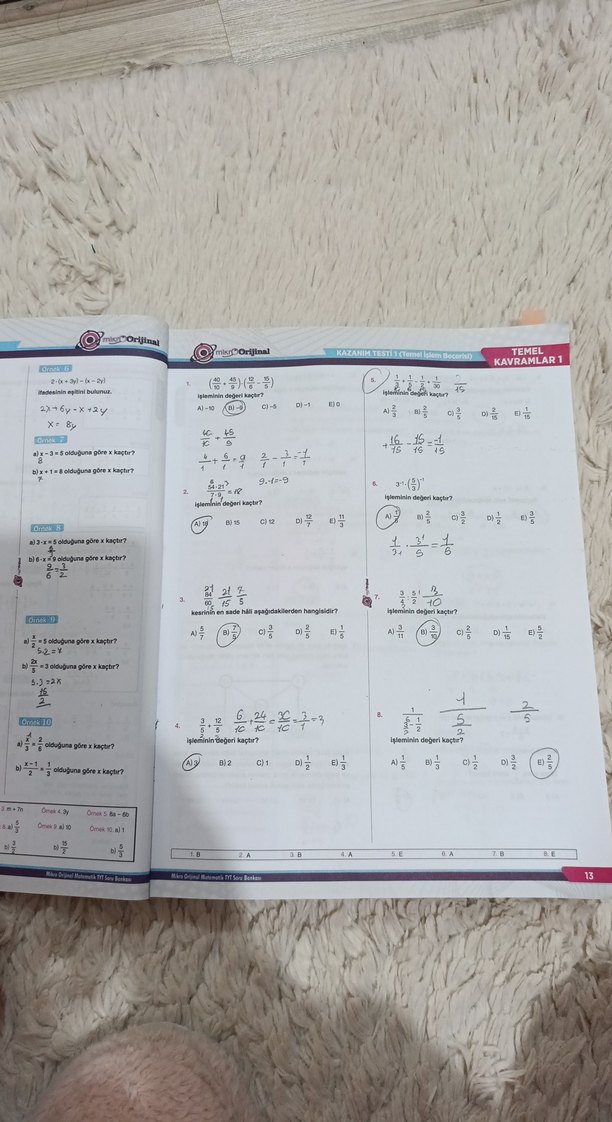 mikro Orijinal
Örnek 6
2·(x + 3y) – (x – 2y)
ifadesinin eşitini bulunuz.
2x+6y-x+2y
x = 8y
Örnek 7
a) x – 3 = 5 olduğuna göre x kaçtır?
8
b) x + 1 = 8 olduğuna göre x kaçtır?
7
Örnek 8
a) 3·x = 5 olduğuna göre x kaçtır?
b) 6·x = 9 olduğuna göre x kaçtır?
9/6 = 3/2
Örnek 9
a) x/2 = 5 olduğuna göre x kaçtır?
5.2 = x
b) 2x/5 = 3 olduğuna göre x kaçtır?
5.3 = 2x
15/2
Örnek 10
a) x/3 = 2/6 olduğuna göre x kaçtır?
b) x – 1/2 = 1/3 olduğuna göre x kaçtır?
m + 7n Örnek 4. 3y Örnek 5. 8a – 6b
8. a) 5/3 Örnek 9. a) 10 Örnek 10. a) 1
b) 3/2 b) 15/2 b) 5/3
Mikro Orijinal Matematik TYT Soru Bankası
mikro Orijinal
KAZANIM TESTİ 1 (Temel İşlem Becerisi)
TEMEL
KAVRAMLAR 1
1.
işleminin değeri kaçtır?
A) –10 B) –9 C) –5 D) –1 E) 0
4/1 + 5/1 = 9/1 2/1 - 3/1 = -1/1
9.-1=-9
2.
54·21/7·9 = 18
işleminin değeri kaçtır?
A) 18 B) 15 C) 12 D) 12/7 E) 11/3
3.
84/60 21/15 7/5
kesrinin en sade hâli aşağıdakilerden hangisidir?
A) 5/7 B) 7/5 C) 3/5 D) 2/5 E) 1/5
4.
3/5 + 12/5 6/10 + 24/10 = 30/10 = 3/1 = 3
işleminin değeri kaçtır?
A) 3 B) 2 C) 1 D) 1/2 E) 1/3
5.
işleminin değeri kaçtır?
A) 2/3 B) 2/5 C) 3/5 D) 2/15 E) 1/15
+16/15 - 15/15 = -1/15
6.
3⁻¹·(5/3)⁻¹
işleminin değeri kaçtır?
A) 1/5 B) 2/5 C) 3/2 D) 1/2 E) 3/5
1/3 · 3/5 = 1/5
7.
işleminin değeri kaçtır?
A) 3/11 B) 3/10 C) 2/5 D) 1/15 E) 5/2
8.
işleminin değeri kaçtır?
A) 1/5 B) 1/3 C) 1/2 D) 3/2 E) 2/5
1. B 2. A 3. B 4. A 5. E 6. A 7. B 8. E
Mikro Orijinal Matematik TYT Soru Bankası
13